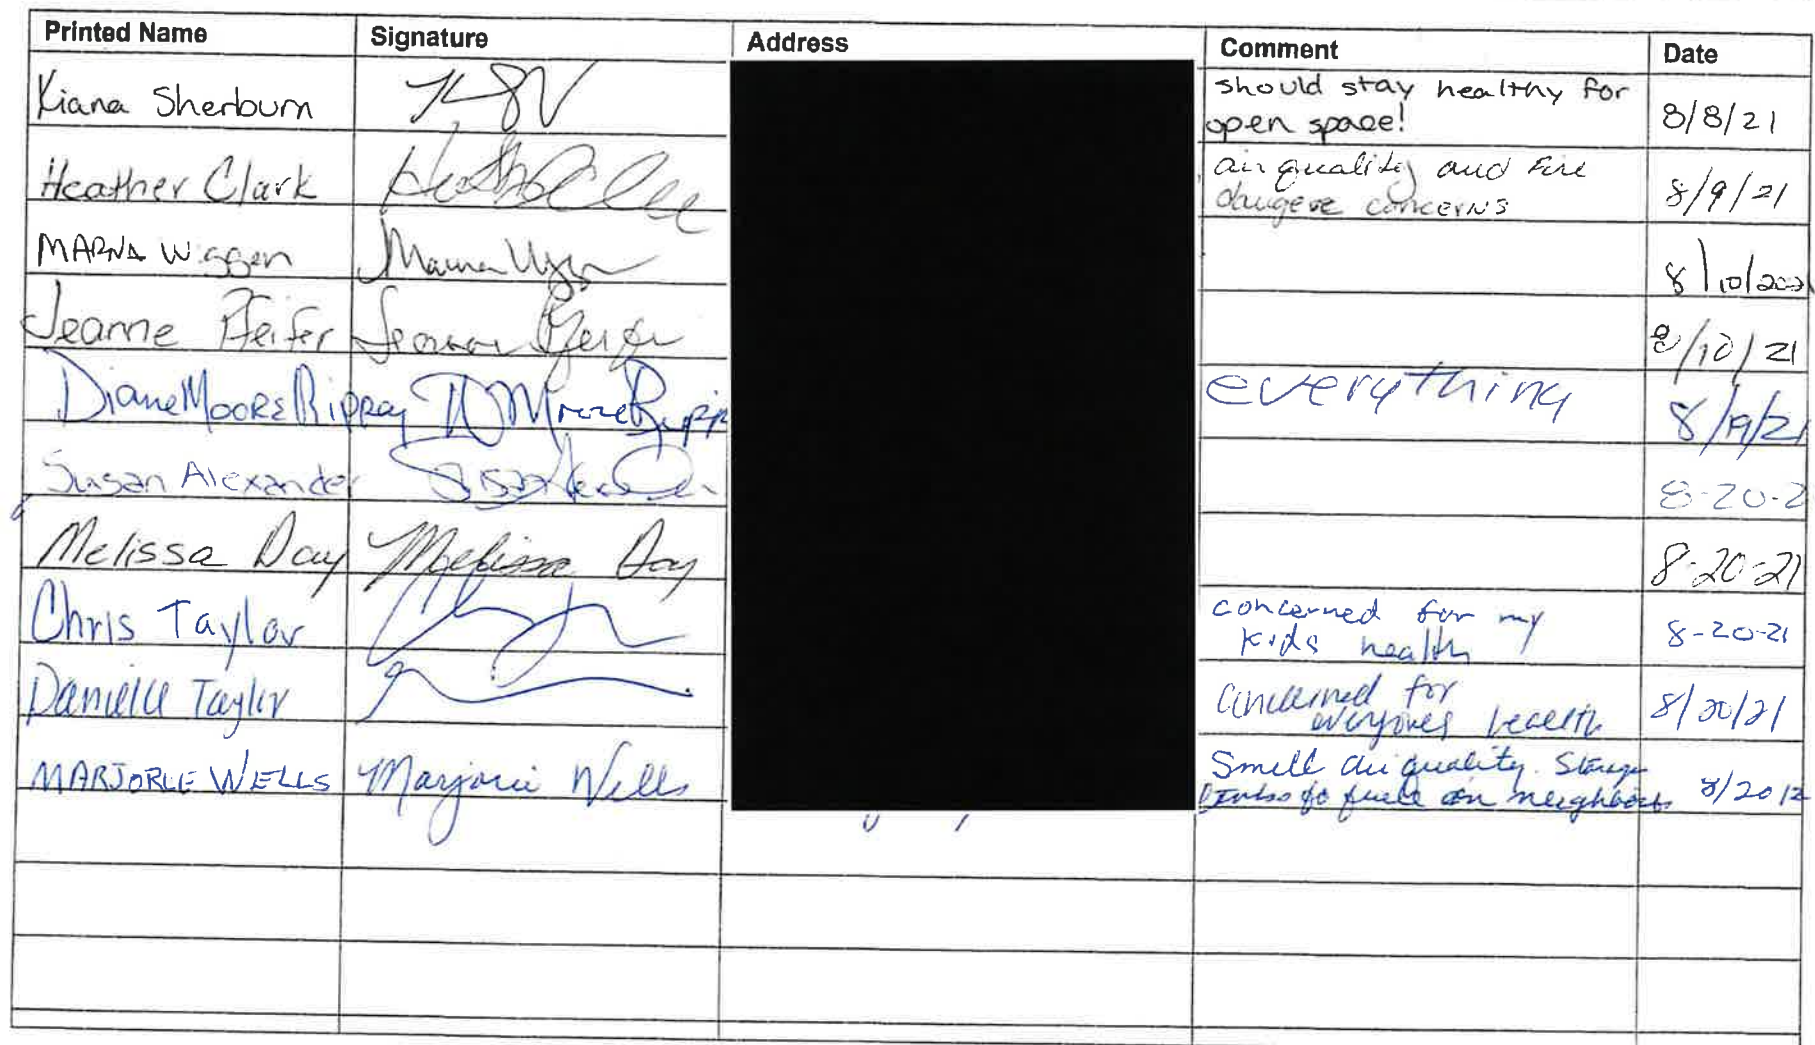 Printed Name Signature Address Comment Date
Kiana Sherburn should stay healthy for
open space! 8/8/21
Heather Clark air quality and fire
dangere concerns 8/9/21
MARNA Wiggen Marna 8/10/2021
Jeanne Pfeifer Jeanne Pfeifer 8/10/21
Diane Moore Rippey D Moore everything 8/19/21
Susan Alexander Susan 8-20-2
Melissa Day Melissa Day 8-20-21
Chris Taylor concerned for my
kids health 8-20-21
Danielle Taylor concerned for
everyones health 8/20/21
MARJORIE WELLS Marjorie Wells Smell air quality. Storage
on neighbors 8/20/2